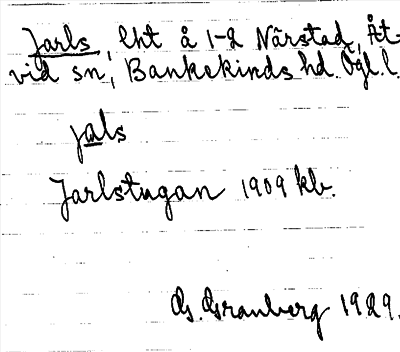 Jarls, lht å 1-2 Närstad, Åt-
vid sn, Bankekinds hd. Ögl. l.
jals
Jarlstugan 1909 kb.
G. Granberg 1929.